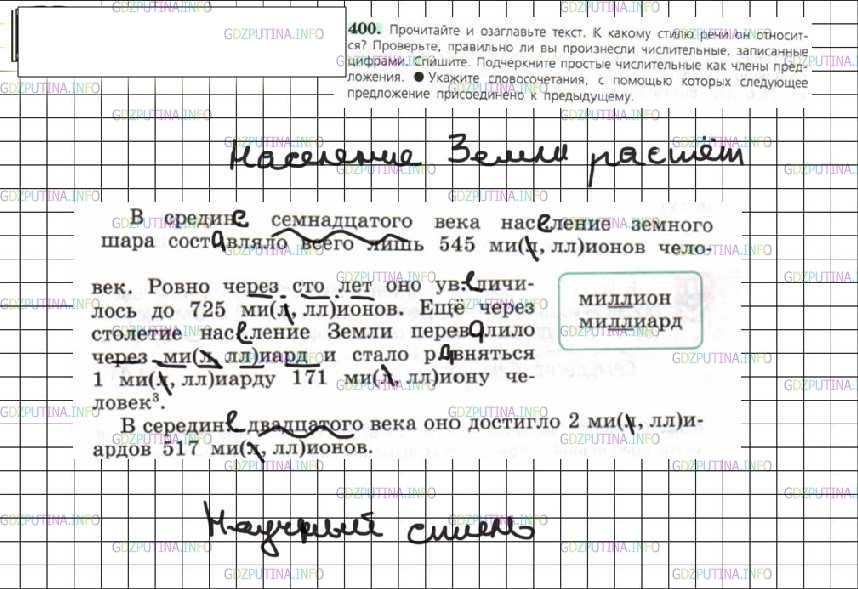 400. Прочитайте и озаглавьте текст. К какому стилю речи он относит-
ся? Проверьте, правильно ли вы произнесли числительные, записанные
цифрами. Спишите. Подчеркните простые числительные как члены пред-
ложения. ● Укажите словосочетания, с помощью которых следующее
предложение присоединено к предыдущему.
Население Земли растёт
В средине семнадцатого века население земного
шара составляло всего лишь 545 ми(л, лл)ионов чело-
век. Ровно через сто лет оно увеличи-
лось до 725 ми(л, лл)ионов. Ещё через
столетие население Земли перевалило
через ми(л, лл)иард и стало равняться
1 ми(л, лл)иарду 171 ми(л, лл)иону че-
ловек³.
миллион
миллиард
В середине двадцатого века оно достигло 2 ми(л, лл)и-
ардов 517 ми(л, лл)ионов.
Научный стиль
GDZPUTINA.INFO